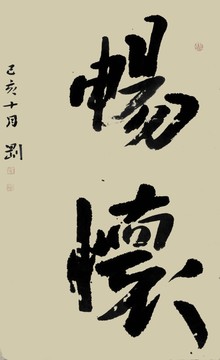 暢懷
己亥十月